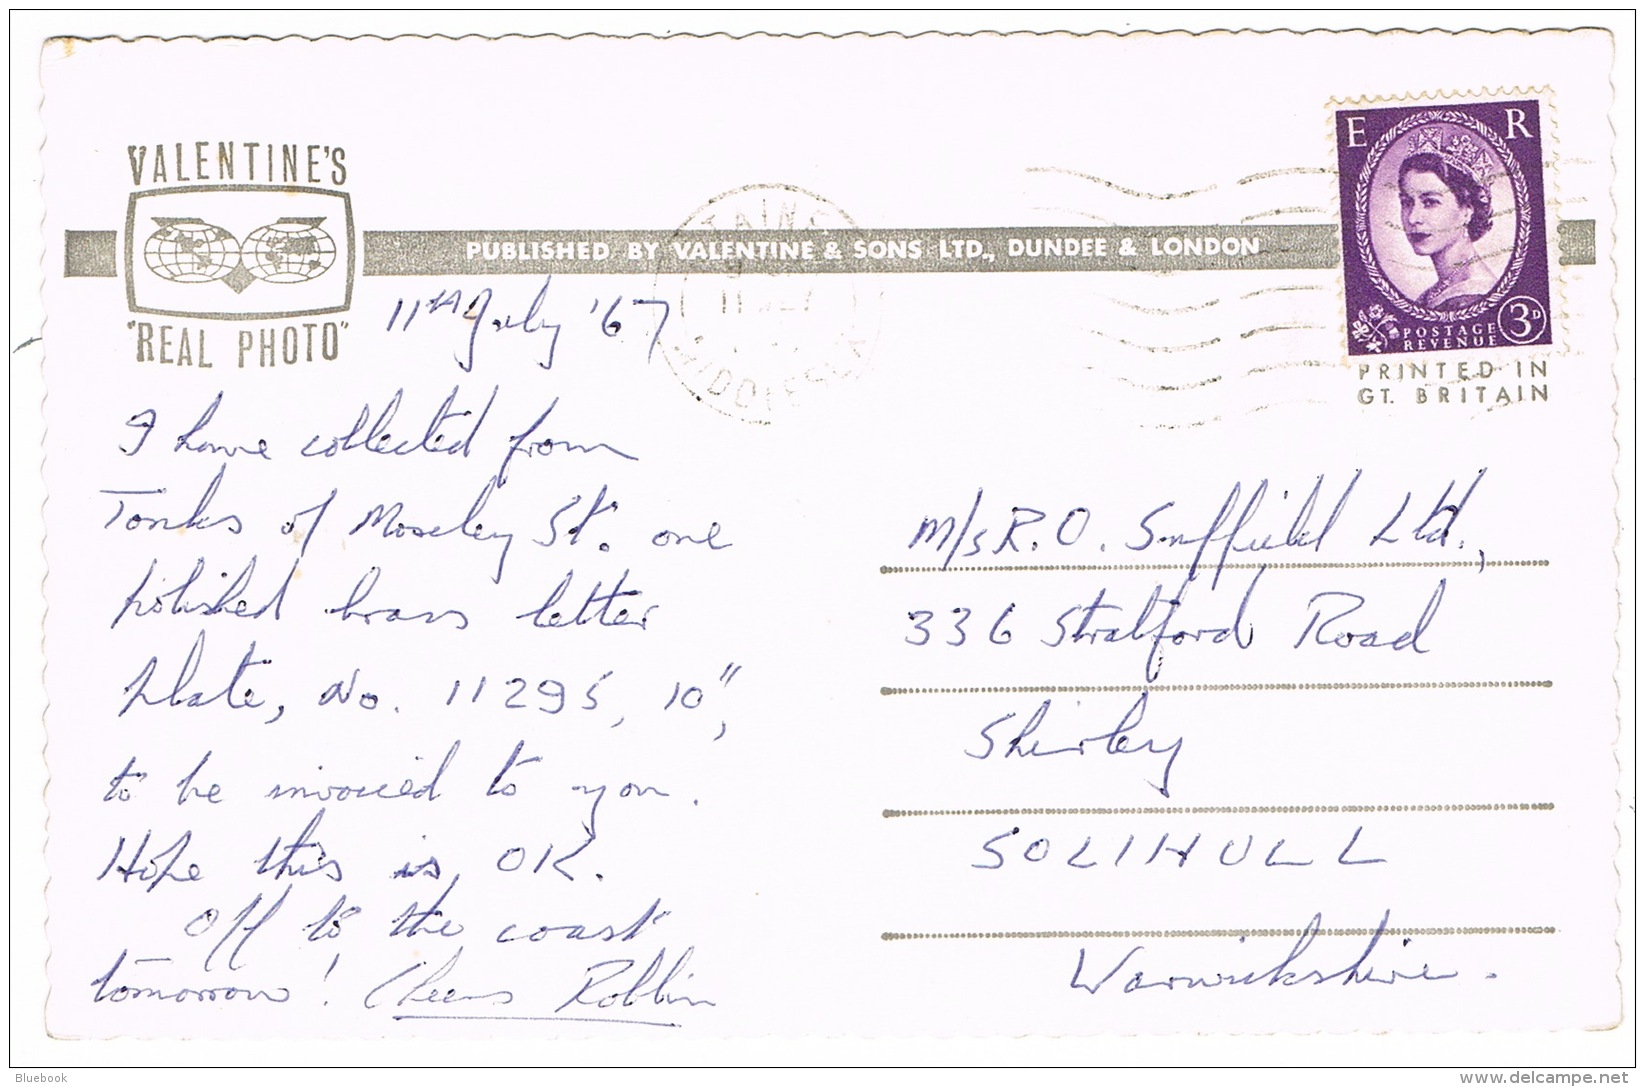 VALENTINE'S
"REAL PHOTO"
PUBLISHED BY VALENTINE & SONS LTD., DUNDEE & LONDON
E R
POSTAGE
REVENUE
3D
PRINTED IN
GT. BRITAIN
MIDDLESEX
11th July '67
I have collected from
Tonks of Moseley St. one
polished brass letter
plate, No. 11295, 10",
to be invoiced to you.
Hope this is OK.
Off to the coast
tomorrow! Cheers Robbin
M/s R.O. Suffield Ltd.,
336 Stratford Road
Shirley
SOLIHULL
Warwickshire.
Bluebook
delcampe.net